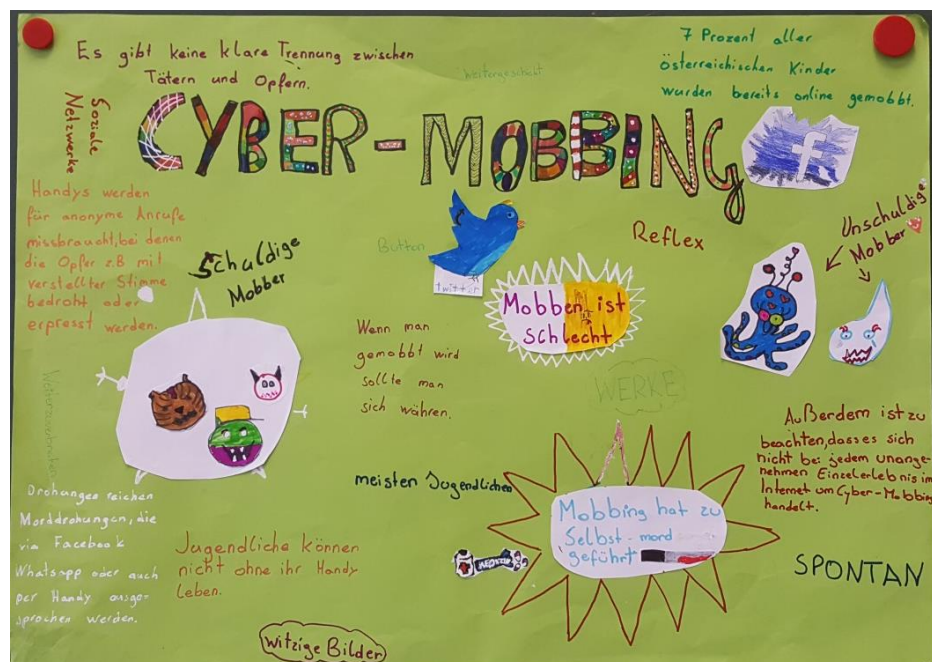 Es gibt keine klare Trennung zwischen
Tätern und Opfern.
7 Prozent aller
österreichischen Kinder
wurden bereits online gemobbt.
Weitergeschickt
Soziale
Netzwerke
CYBER-MOBBING
f
Handys werden
für anonyme Anrufe
missbraucht, bei denen
die Opfer z.B mit
verstellter Stimme
bedroht oder
erpresst werden.
Schuldige
Mobber
Button
twitter
Reflex
Unschuldige
Mobber
Mobben ist
schlecht
Wenn man
gemobbt wird
sollte man
sich währen.
WERKE
Außerdem ist zu
beachten, dass es sich
nicht bei jedem unange-
nehmen Einzelerlebnis im
Internet um Cyber-Mobbing
handelt.
meisten Jugendlichen
Mobbing hat zu
Selbst-mord
geführt
Drohungen reichen
Morddrohungen, die
via Facebook
Whatsapp oder auch
per Handy ausge-
sprochen werden.
Jugendliche können
nicht ohne ihr Handy
Leben.
SPONTAN
witzige Bilder